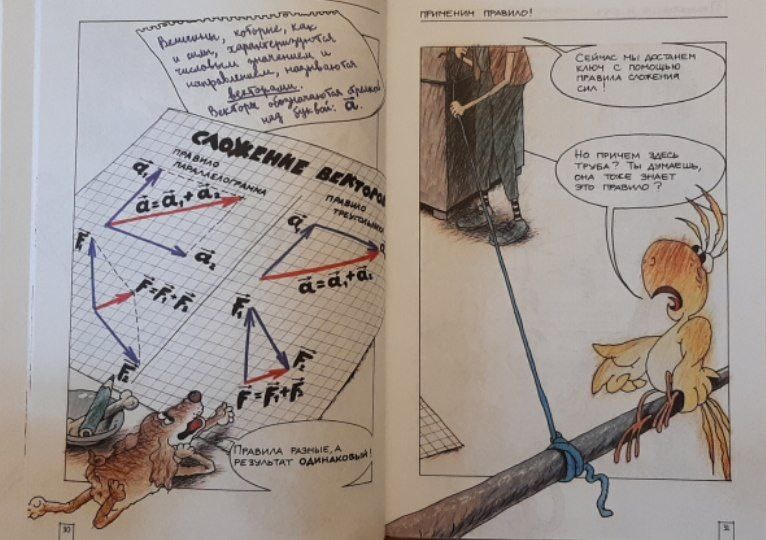 Величины, которые, как
и силы, характеризуются
числовым значением и
направлением, называются
векторами.
Вектора обозначаются стрелкой
над буквой: a⃗.
СЛОЖЕНИЕ ВЕКТОРОВ
ПРАВИЛО
ПАРАЛЛЕЛОГРАММА
a⃗₁
a⃗ = a⃗₁ + a⃗₂
a⃗₂
F⃗₁
F⃗ = F⃗₁ + F⃗₂
F⃗₂
ПРАВИЛО
ТРЕУГОЛЬНИКА
a⃗₁
a⃗ = a⃗₁ + a⃗₂
F⃗₁
F⃗₂
F⃗ = F⃗₁ + F⃗₂
ПРАВИЛА РАЗНЫЕ, А
РЕЗУЛЬТАТ ОДИНАКОВЫЙ!
30
ПРИМЕНИМ ПРАВИЛО!
СЕЙЧАС МЫ ДОСТАНЕМ
КЛЮЧ С ПОМОЩЬЮ
ПРАВИЛА СЛОЖЕНИЯ
СИЛ!
НО ПРИЧЕМ ЗДЕСЬ
ТРУБА? ТЫ ДУМАЕШЬ,
ОНА ТОЖЕ ЗНАЕТ
ЭТО ПРАВИЛО?
31